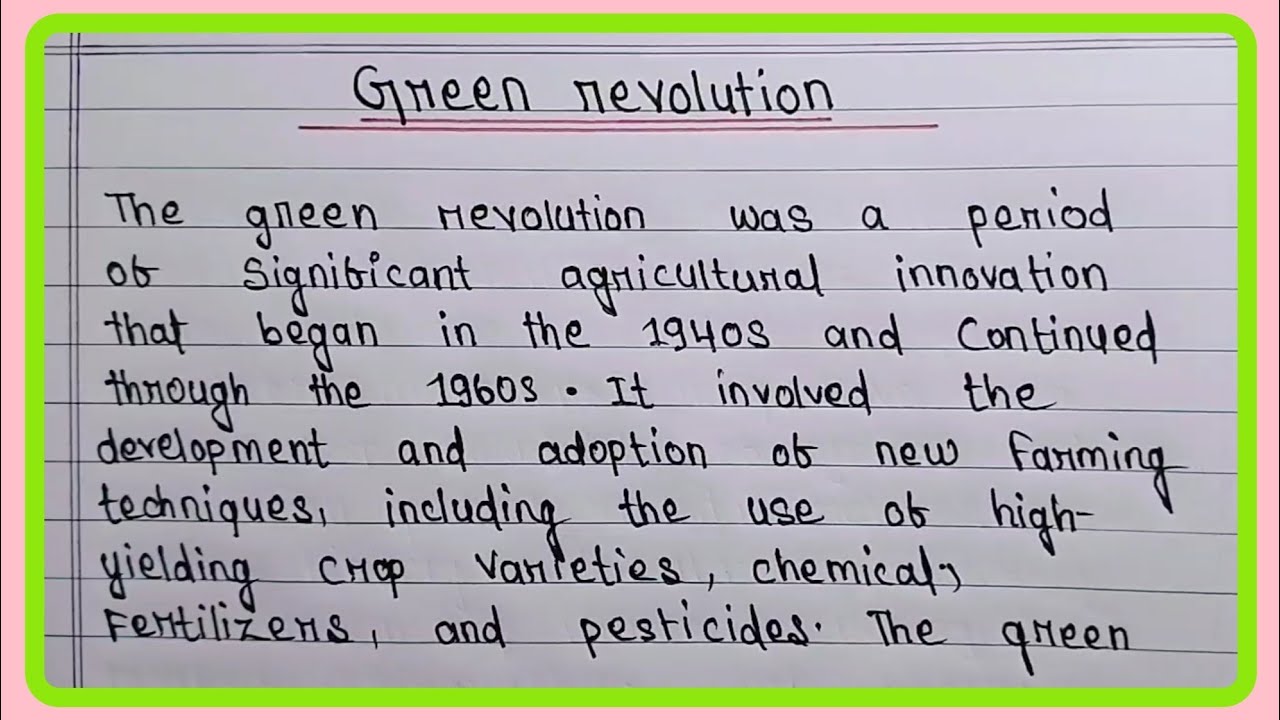 Green revolution
The green revolution was a period
of significant agricultural innovation
that began in the 1940s and Continued
through the 1960s. It involved the
development and adoption of new farming
techniques, including the use of high-
yielding crop varieties, chemical,
Fertilizers, and pesticides. The green